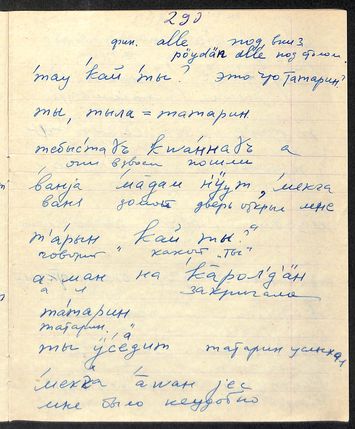 290
фин. alle под вниз
pöydän alle под столом
тау кай ты? это что татарин?
ты, тыла = татарин.
тебыстаҕъ кыаннаҕъ а
они взвесь пошли
ванjа мадам нӱӱт, мекга
ваня зовет дверь открыл мне
тарын кай ты?
говорит " какой "ты"
а ман на каролдӓн
а я закричала
татарин
татарин.
ты ӱседит татарин услыхал
мекга ажан jес
мне было неудобно